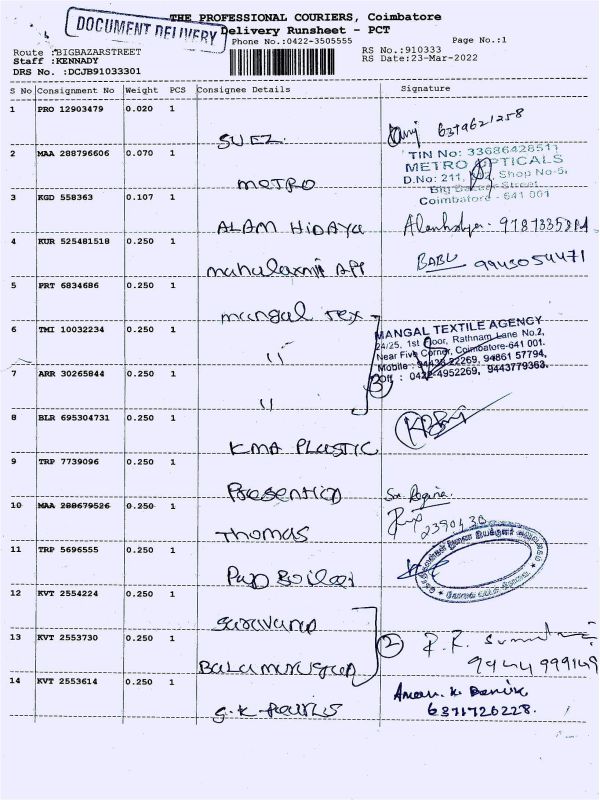 THE PROFESSIONAL COURIERS, Coimbatore
DOCUMENT DELIVERY
Delivery Runsheet - PCT
Phone No.:0422-3505555
Page No.:1
Route :BIGBAZARSTREET
RS No.:910333
Staff :KENNADY
RS Date:23-Mar-2022
DRS No. :DCJB91033301
S No Consignment No Weight PCS Consignee Details Signature
1 PRO 12903479 0.020 1 SUEZ 6379621258
2 MAA 288796606 0.070 1 METRO
TIN No: 33686428511
METRO OPTICALS
D.No: 211, Shop No-5,
Big Bazaar Street,
Coimbatore - 641 001
3 KGD 558363 0.107 1 ALAM HIDAYA
4 KUR 525481518 0.250 1 mahalaxmi APP BABU 9943054471
5 PRT 6834686 0.250 1 mangal Tex
6 TMI 10032234 0.250 1 "
MANGAL TEXTILE AGENCY
24/25, 1st Floor, Rathnam Lane No.2,
Near Five Corner, Coimbatore-641 001.
Mobile : 94438 22269, 94861 57794,
Off : 0422-4952269, 9443779363.
7 ARR 30265844 0.250 1 " 3
8 BLR 695304731 0.250 1 KMA PLASTIC
9 TRP 7739096 0.250 1 Presention
10 MAA 288679526 0.250 1 Thomas
11 TRP 5696555 0.250 1
12 KVT 2554224 0.250 1 Saravana
13 KVT 2553730 0.250 1 Balamurugan 2
14 KVT 2553614 0.250 1 G.K 6371726228.